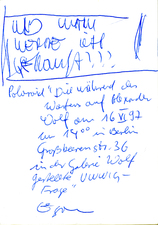 UND WANN
WERDE ICH
GEKAUFT????
Polaroid "Die während des
Wartens auf Alexander
Wolf am 16 VI 97
um 14⁰⁰ in Berlin
Grossbeerenstr. 36
in der Galerie Wolf
gestellte
Frage"